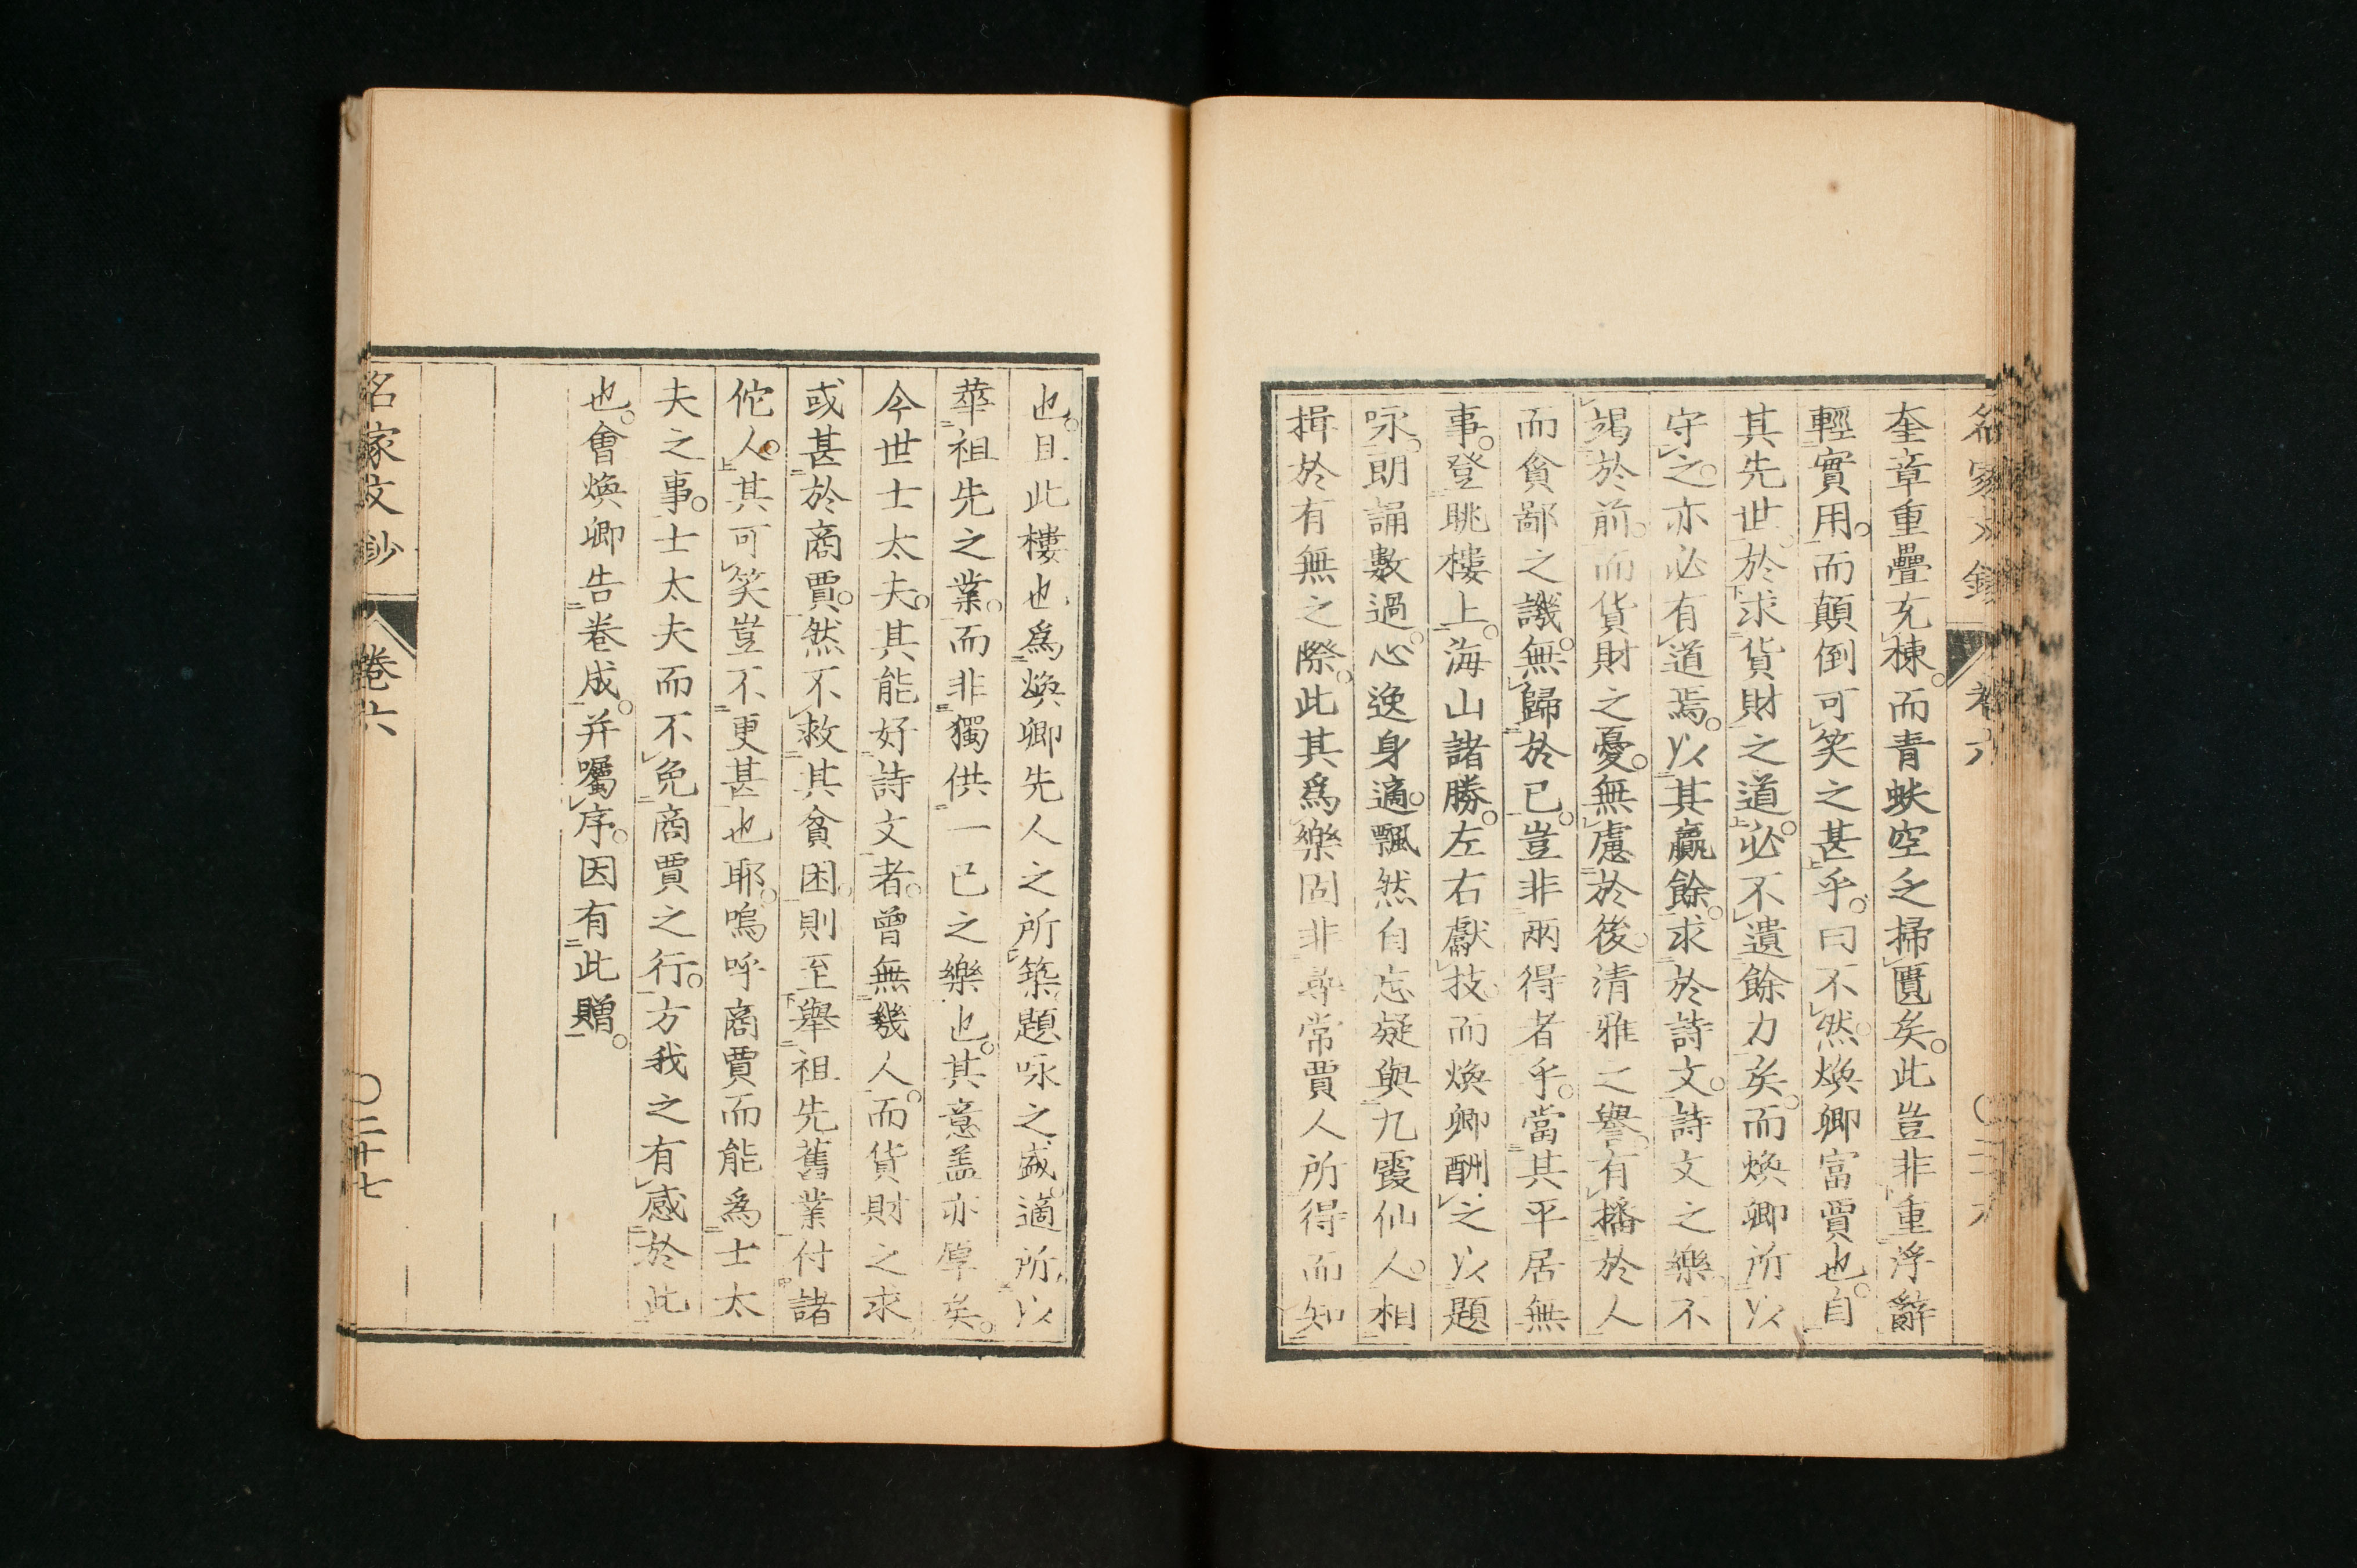 奎章重疊充棟。而青蚨空乏掃匱矣。此豈非重浮辭
輕實用。而顛倒可笑之甚乎。曰不然。煥卿富賈也。自
其先世。於求貨財之道。必不遺餘力矣。而煥卿所以
守之。亦必有道焉。以其贏餘。求於詩文。詩文之樂。不
竭於前。而貨財之憂。無慮於後。清雅之譽。有播於人
而貪鄙之譏。無歸於已。豈非兩得者乎。當其平居無
事。登眺樓上。海山諸勝。左右獻技。而煥卿酬之以題
咏。朗誦數過。心逸身適。飄然自忘。疑與九霞仙人。相
揖於有無之際。此其爲樂固非尋常賈人所得而知
也。且此樓也。爲煥卿先人之所築。題咏之盛。適所以
華祖先之業。而非獨供一已之樂也。其意盖亦厚矣。
今世士太夫。其能好詩文者。曾無幾人。而貨財之求
或甚於商賈。然不救其貧困。則至舉祖先舊業付諸
佗人。其可笑豈不更甚也耶。嗚呼商賈而能爲士太
夫之事。士太夫而不免商賈之行。方我之有感於此
也。會煥卿告卷成。并囑序。因有此贈。
名家文鈔 卷六 〇二十七